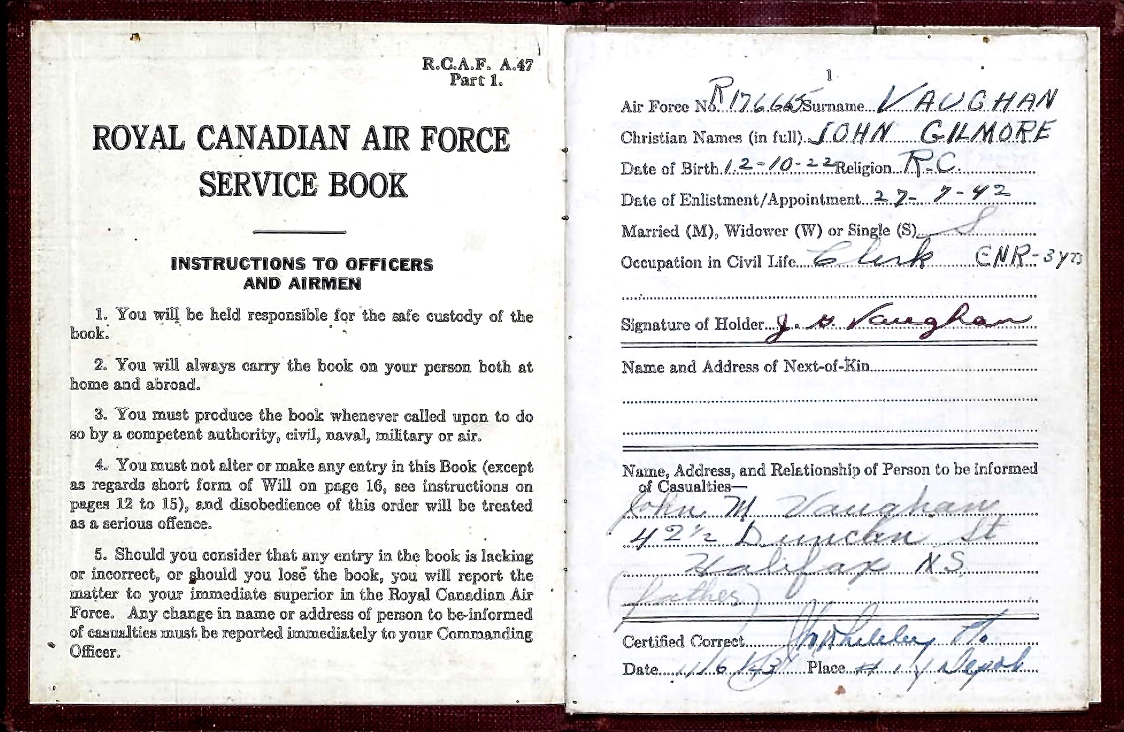 R.C.A.F. A.47
Part 1.
ROYAL CANADIAN AIR FORCE
SERVICE BOOK
INSTRUCTIONS TO OFFICERS
AND AIRMEN
1. You will be held responsible for the safe custody of the
book.
2. You will always carry the book on your person both at
home and abroad.
3. You must produce the book whenever called upon to do
so by a competent authority, civil, naval, military or air.
4. You must not alter or make any entry in this Book (except
as regards short form of Will on page 16, see instructions on
pages 12 to 15), and disobedience of this order will be treated
as a serious offence.
5. Should you consider that any entry in the book is lacking
or incorrect, or should you lose the book, you will report the
matter to your immediate superior in the Royal Canadian Air
Force. Any change in name or address of person to be informed
of casualties must be reported immediately to your Commanding
Officer.
1
Air Force No. R176665 Surname VAUGHAN
Christian Names (in full) JOHN GILMORE
Date of Birth 12-10-22 Religion R.C.
Date of Enlistment/Appointment 27-7-42
Married (M), Widower (W) or Single (S) S
Occupation in Civil Life Clerk CNR-3 yrs
Signature of Holder J. G. Vaughan
Name and Address of Next-of-Kin
Name, Address, and Relationship of Person to be informed
of Casualties—
John M Vaughan
42½ Duncan St
Halifax NS
(father)
Certified Correct
Date Place Depot